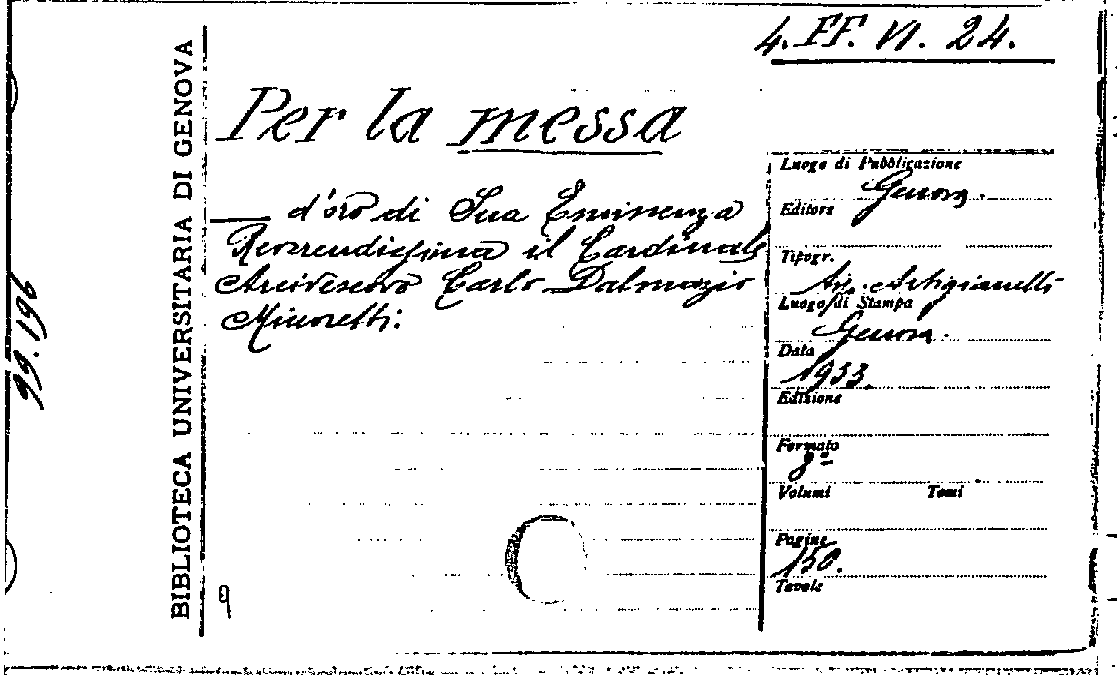 4. FF. VI. 24.
BIBLIOTECA UNIVERSITARIA DI GENOVA
99.196
Per la messa
d'oro di Sua Eminenza
Reverendissima il Cardinale
Arcivescovo Carlo Dalmazio
Minoretti:
9
Luogo di Pubblicazione
Genova.
Editore
Tipogr.
Artigianelli
Luogo di Stampa
Genova.
Data
1933.
Edizione
Formato
8º
Volumi Tomi
Pagine
150.
Tavole